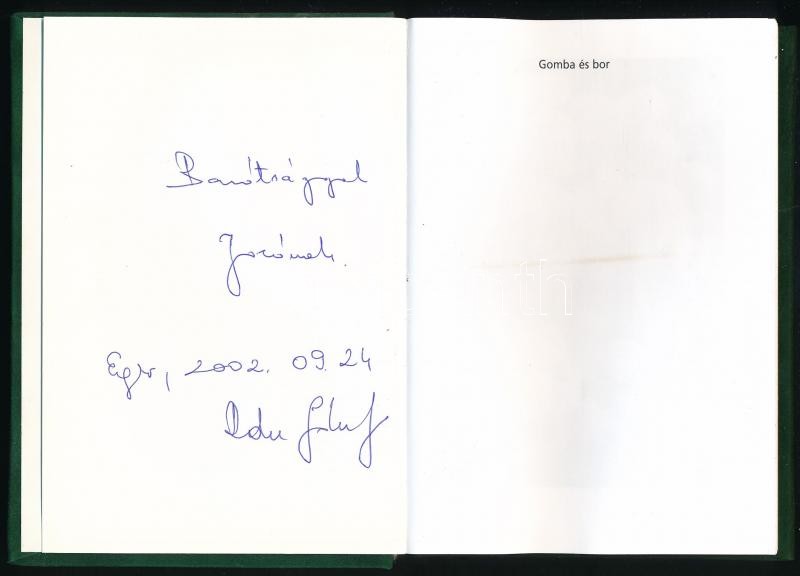 Barátsággal
Jocónak.
Eger, 2002. 09. 24
Gomba és bor